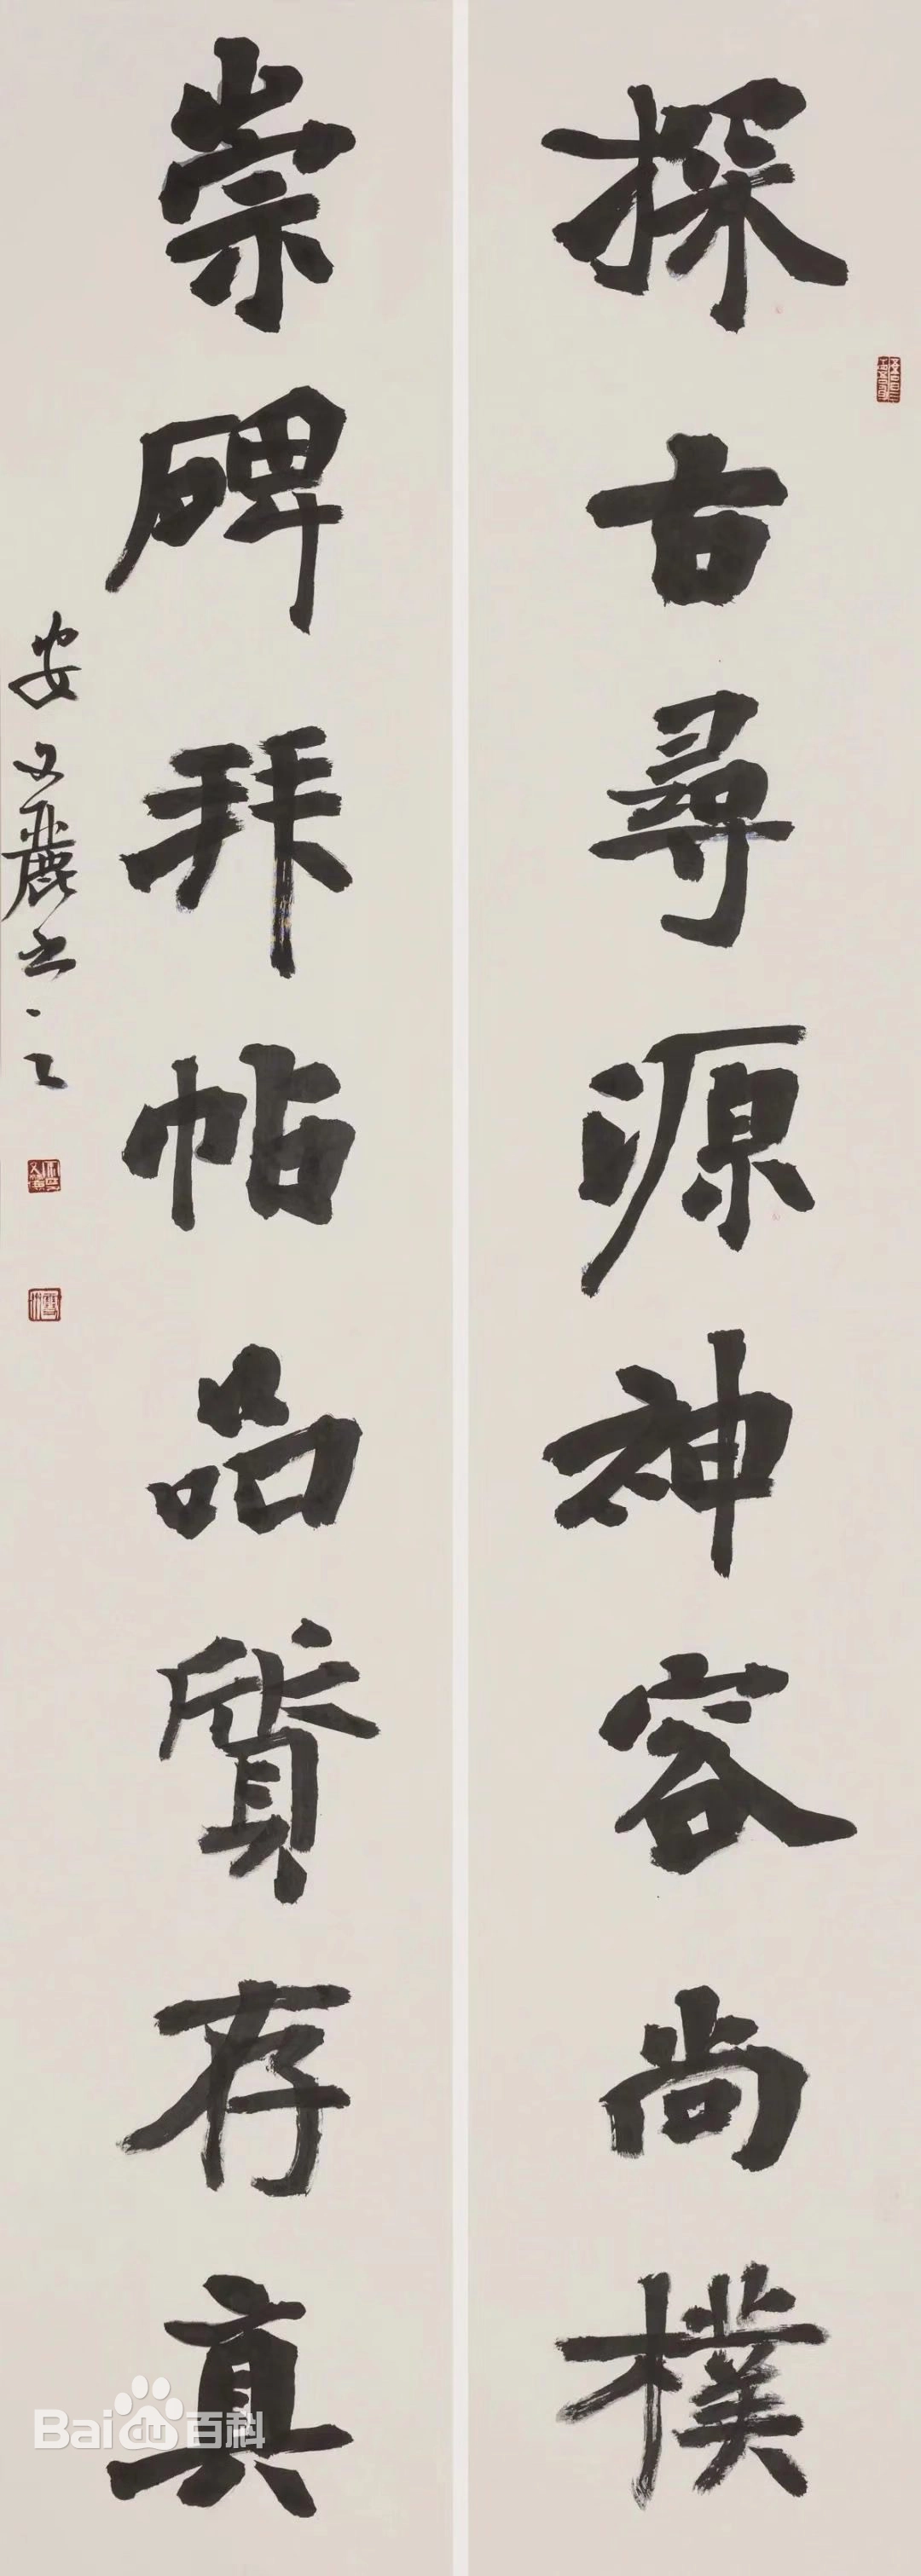 探古尋源神容尚樸
崇碑拜帖品質存真
安文麗书之
Baidu百科